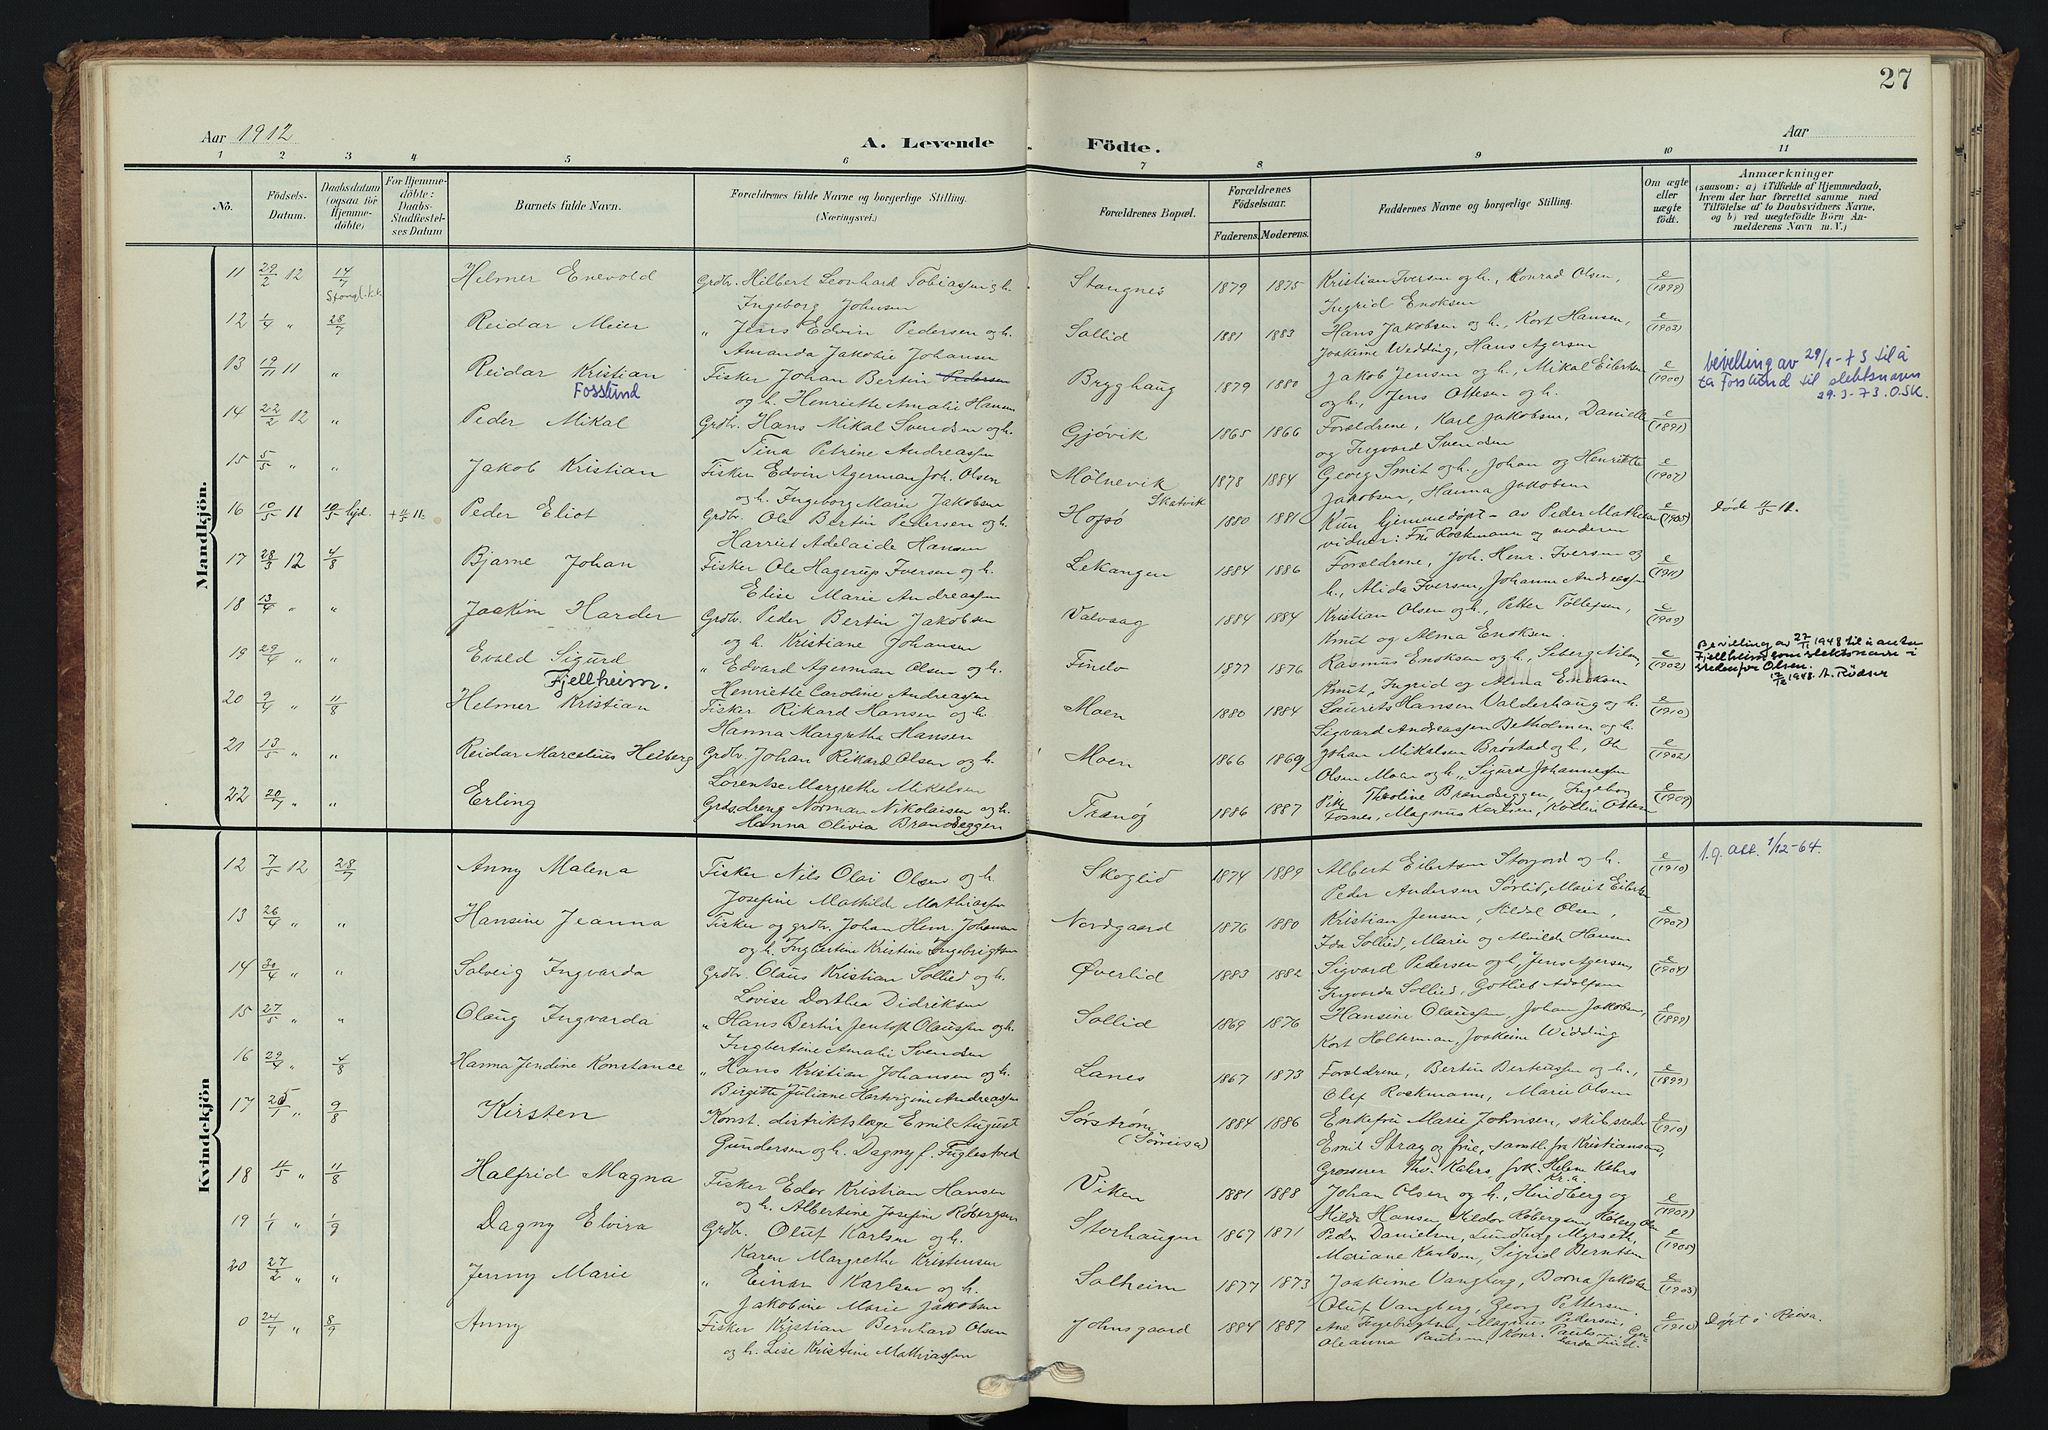 27
Aar 1912
A. Levende
Födte.
Aar
1 2 3 4 5 6 7 8 9 10 11
No.
Födsels-Datum.
Daabsdatum (ogsaa for Hjemme-döbte)
For Hjemme-döbte: Daabs-Stadfæstel-ses Datum
Barnets fulde Navn.
Forældrenes fulde Navne og borgerlige Stilling. (Næringsvei.)
Forældrenes Bopæl.
Forældrenes Födselsaar.
Faderens. Moderens.
Faddernes Navne og borgerlige Stilling.
Om ægte eller uægte födt.
Anmærkninger
(saasom: a) i Tilfælde af Hjemmedaab, hvem der har forrettet samme med Tilföielse af to Daabsvidners Navne, og b) ved uægtefödte Börn An-melderens Navn m. V.)
Mandkjön.
11 29/2 12 14/7 Helmer Enevold Grdbr. Hilbert Leonhard Tobiassen og h. Stangnes 1879 1875 Kristian Iversen og h., Konrad Olsen, e/(1899)
Ingeborg Johnsen Ingrid Enoksen
12 1/4 " 28/7 Reidar Meier " Jens Edvin Pedersen og h. Sollid 1881 1883 Hans Jakobsen og h., Kort Hansen, e/(1903)
Amanda Jakobie Johansen Joakime Wedding, Hans Agersen
13 19/11 11 " Reidar Kristian Fisker Johan Bertin Pedersen Brygghaug 1879 1880 Jakob Jensen og h., Mikal Eilertsen e/(1900) bevilling av 29/1-73 til å
Fosslund og h. Henriette Amalie Hansen og h., Jens Ottesen og h. ta Fosslund til slektsnavn
29.3-73. O.SK.
14 22/2 12 " Peder Mikal Grdbr. Hans Mikal Svendsen og h. Gjøvik 1865 1866 Forældrene, Karl Jakobsen, Danielle e/(1891)
Tina Petrine Andreassen og Ingvard Svendsen
15 5/5 " " Jakob Kristian Fisker Edvin Agerman Joh. Olsen Mølnevik 1878 1884 Georg Smit og h., Johan og Henriette e/(1907)
og h. Ingeborg Marie Jakobsen Skatvik Jakobsen, Hanna Jakobsen
16 10/5 11 10/5 hjd. Peder Eliot Grdbr. Ole Bertin Pedersen og h. Hofsø 1880 1881 Kun hjemmedøpt - av Peder Mathisen e/(1905) Døde 11/5 11.
Harriet Adelaide Hansen vidner: Fru Rockmann og moderen
17 28/3 12 4/8 Bjarne Johan Fisker Ole Hagerup Iversen og h. Lekangen 1884 1886 Forældrene, Joh. Henr. Iversen og e/(1911)
Elise Marie Andreassen h., Alida Iversen, Johanne Andreassen
18 13/4 " " Joakim Harder Grdbr. Peder Bertin Jakobsen Valvaag 1884 1884 Kristian Olsen og h., Petter Tollefsen, e/(1909)
og h. Kristiane Johansen Knut og Alma Enoksen.
19 29/4 " " Evald Sigurd " Edvard Agerman Olsen og h. Finlo 1877 1876 Rasmus Enoksen og h., e/(1902) Bevilling av 27/11 1948 til å anta
Fjellheim. Henriette Caroline Andreassen Knut, Ingrid og Alma Enoksen Fjellheim som slektsnavn i
stedenfor Olsen.
20 9/4 " 11/8 Helmer Kristian Fisker Rikard Hansen og h. Moen 1880 1884 Laurits Hansen Valderhaug og h. e/(1910)
Hanna Margretha Hansen Sigvard Andreassen Betholmen og h.
21 13/5 " " Reidar Marcelius Hilberg Grdbr. Johan Rikard Olsen og h. Moen 1866 1869 Johan Mikalsen Brøstad og h., Ole e/(1902)
Lorentse Margrethe Mikalsen Olsen Moen og h., Sigurd Johannessen
22 20/7 " " Erling Grdsdreng Norman Nikolaisen og h. Tranøy 1886 1887 Pike Theoline Brandseggen, Ingeborg e/(1909)
Hanna Olivia Brandseggen Fosnes, Magnus Karlsen, Kollin Ottesen
Kvindekjön
12 7/5 12 28/7 Anny Malena Fisker Nils Olai Olsen og h. Skoglid 1874 1889 Albert Eilertsen Storjord og h. e/(1910) 1.g. att. 1/12-64.
Josefine Mathilde Mathiassen Peder Andersen Sørlid, Marit Eilertsen
13 26/4 " " Hansine Jeanna Fisker og grdbr. Johan Henr. Johansen Nordgaard 1876 1880 Kristian Jensen, Hildal Olsen, e/(1907)
og h. Ingbertine Kristine Ingebrigtsen Ida Sollied, Marie og Alvilde Hansen
14 30/4 " " Solveig Ingvarda Grdbr. Olaus Kristian Sollied og h. Øverlid 1883 1882 Sigvard Pedersen og h, Jens Agersen, e/(1904)
Lovise Dorthea Didriksen Ingvarda Sollied, Gotlieb Adolfsen
15 27/5 " " Olaug Ingvarda " Hans Bertin Jentoft Olaussen og h. Sollid 1869 1876 Hansine Olaussen, Johan Jakobsen, e/(1899)
Ingbertine Amalie Svendsen Kort Holterman, Joakime Widding
16 29/4 4/8 Hanna Jendine Konstance " Hans Kristian Johansen og h. Lanes 1867 1873 Forældrene, Bertin Berteussen og h., e/(1899)
Birgitte Juliane Hartvigine Andreassen Olef Rockmann, Marie Olsen
17 " 9/8 Kirsten Konst. distriktslæge Emil August Sørstrøm 1884 1886 Enkefru Marie Johnsen, skibsreder e/(1910)
Gundersen og h. Dagny f. Fuglestved (Sørreisa) Emil Stray og frue, samtl. fra Kristiansand,
Grosserer Thv. Kahrs frk. Helene Kahrs
Kr.a.
18 11/5 " 11/8 Halfrid Magna Fisker Edor Kristian Hansen Viken 1881 1888 Johan Olsen og h., Hindberg og e/(1909)
og h. Albertine Josefine Røbergsen Hilda Hansen,
19 1/1 " 1/9 Dagny Elvira Grdbr. Oluf Karlsen og h. Storhaugen 1867 1871 Peder Danielsen, Lundberg Myrseth, e/(1905)
Karen Margrethe Kristensen Mariane Karlsen, Sigrid Berntsen
20 27/2 " " Jenny Marie " Einar Karlsen og h. Solheim 1877 1873 Joakime Vangberg, Dorna Jakobsen e/(1903)
Jakobine Marie Jakobsen Oluf Vangberg, Georg Pettersen.
0 24/7 " 8/9 Anny Fisker Kristian Bernhard Olsen Johnsgaard 1884 1887 Ane Ingebrigtsen, Magnus Pedersen, e/(1910) Døpt i Reisa.
og h. Lise Kristine Mathiassen Oleanna Paulsen, Konr. Paulsen,